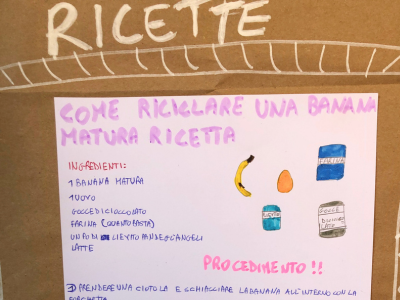 RICETTE
COME RICICLARE UNA BANANA
MATURA RICETTA
INGREDIENTI:
1 BANANA MATURA
1 UOVO
GOCCE DI CIOCCOLATO
FARINA (QUANTO BASTA)
UN PO DI LIEVITO PANDEGLIANGELI
LATTE
FARINA
GOCCE
PROCEDIMENTO!!
PRENDERE UNA CIOTOLA E SCHIACCIARE LA BANANA ALL'INTERNO CON LA
FORCHETTA